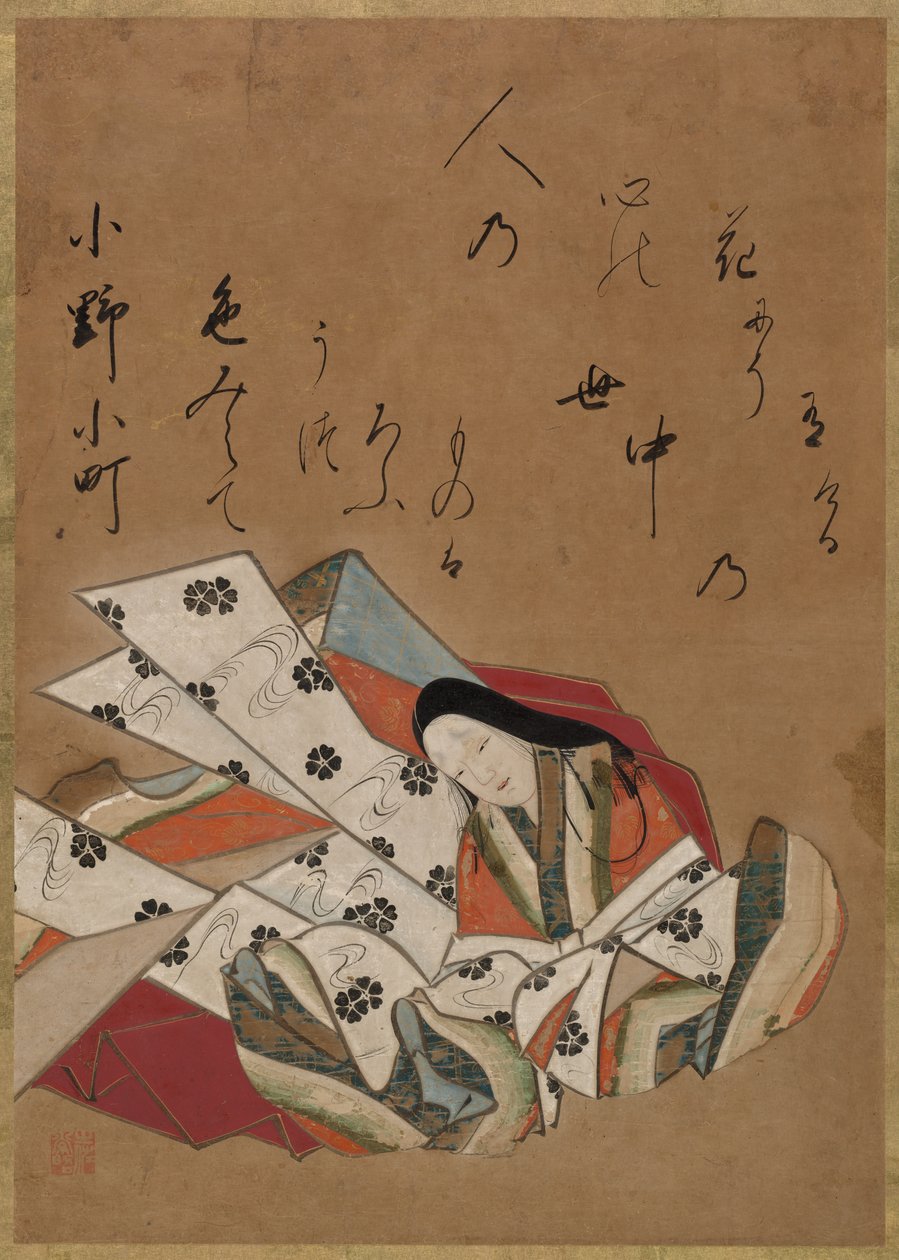 小野小町
色みえて
うつ
ろふ
ものは
世中乃
人乃
心の
花にそ
有ける